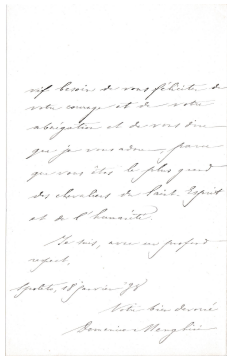 vif besoin de vous féliciter de
votre courage et de votre
abnégation et de vous dire
que je vous admire, parce
que vous êtes le plus grand
des chevaliers de Saint-Esprit
et de l'humanité.
Je suis, avec un profond
respect,
18 janvier 98
Votre bien dévoué